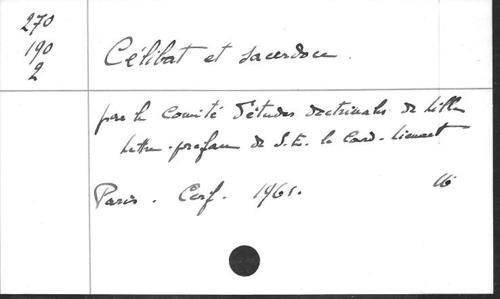 270
190
2
Célibat et sacerdoce
par le Comité d'études doctrinales de Lille
Lettre-préface de S.E. le Card. Liénart
Paris. Cerf. 1961.